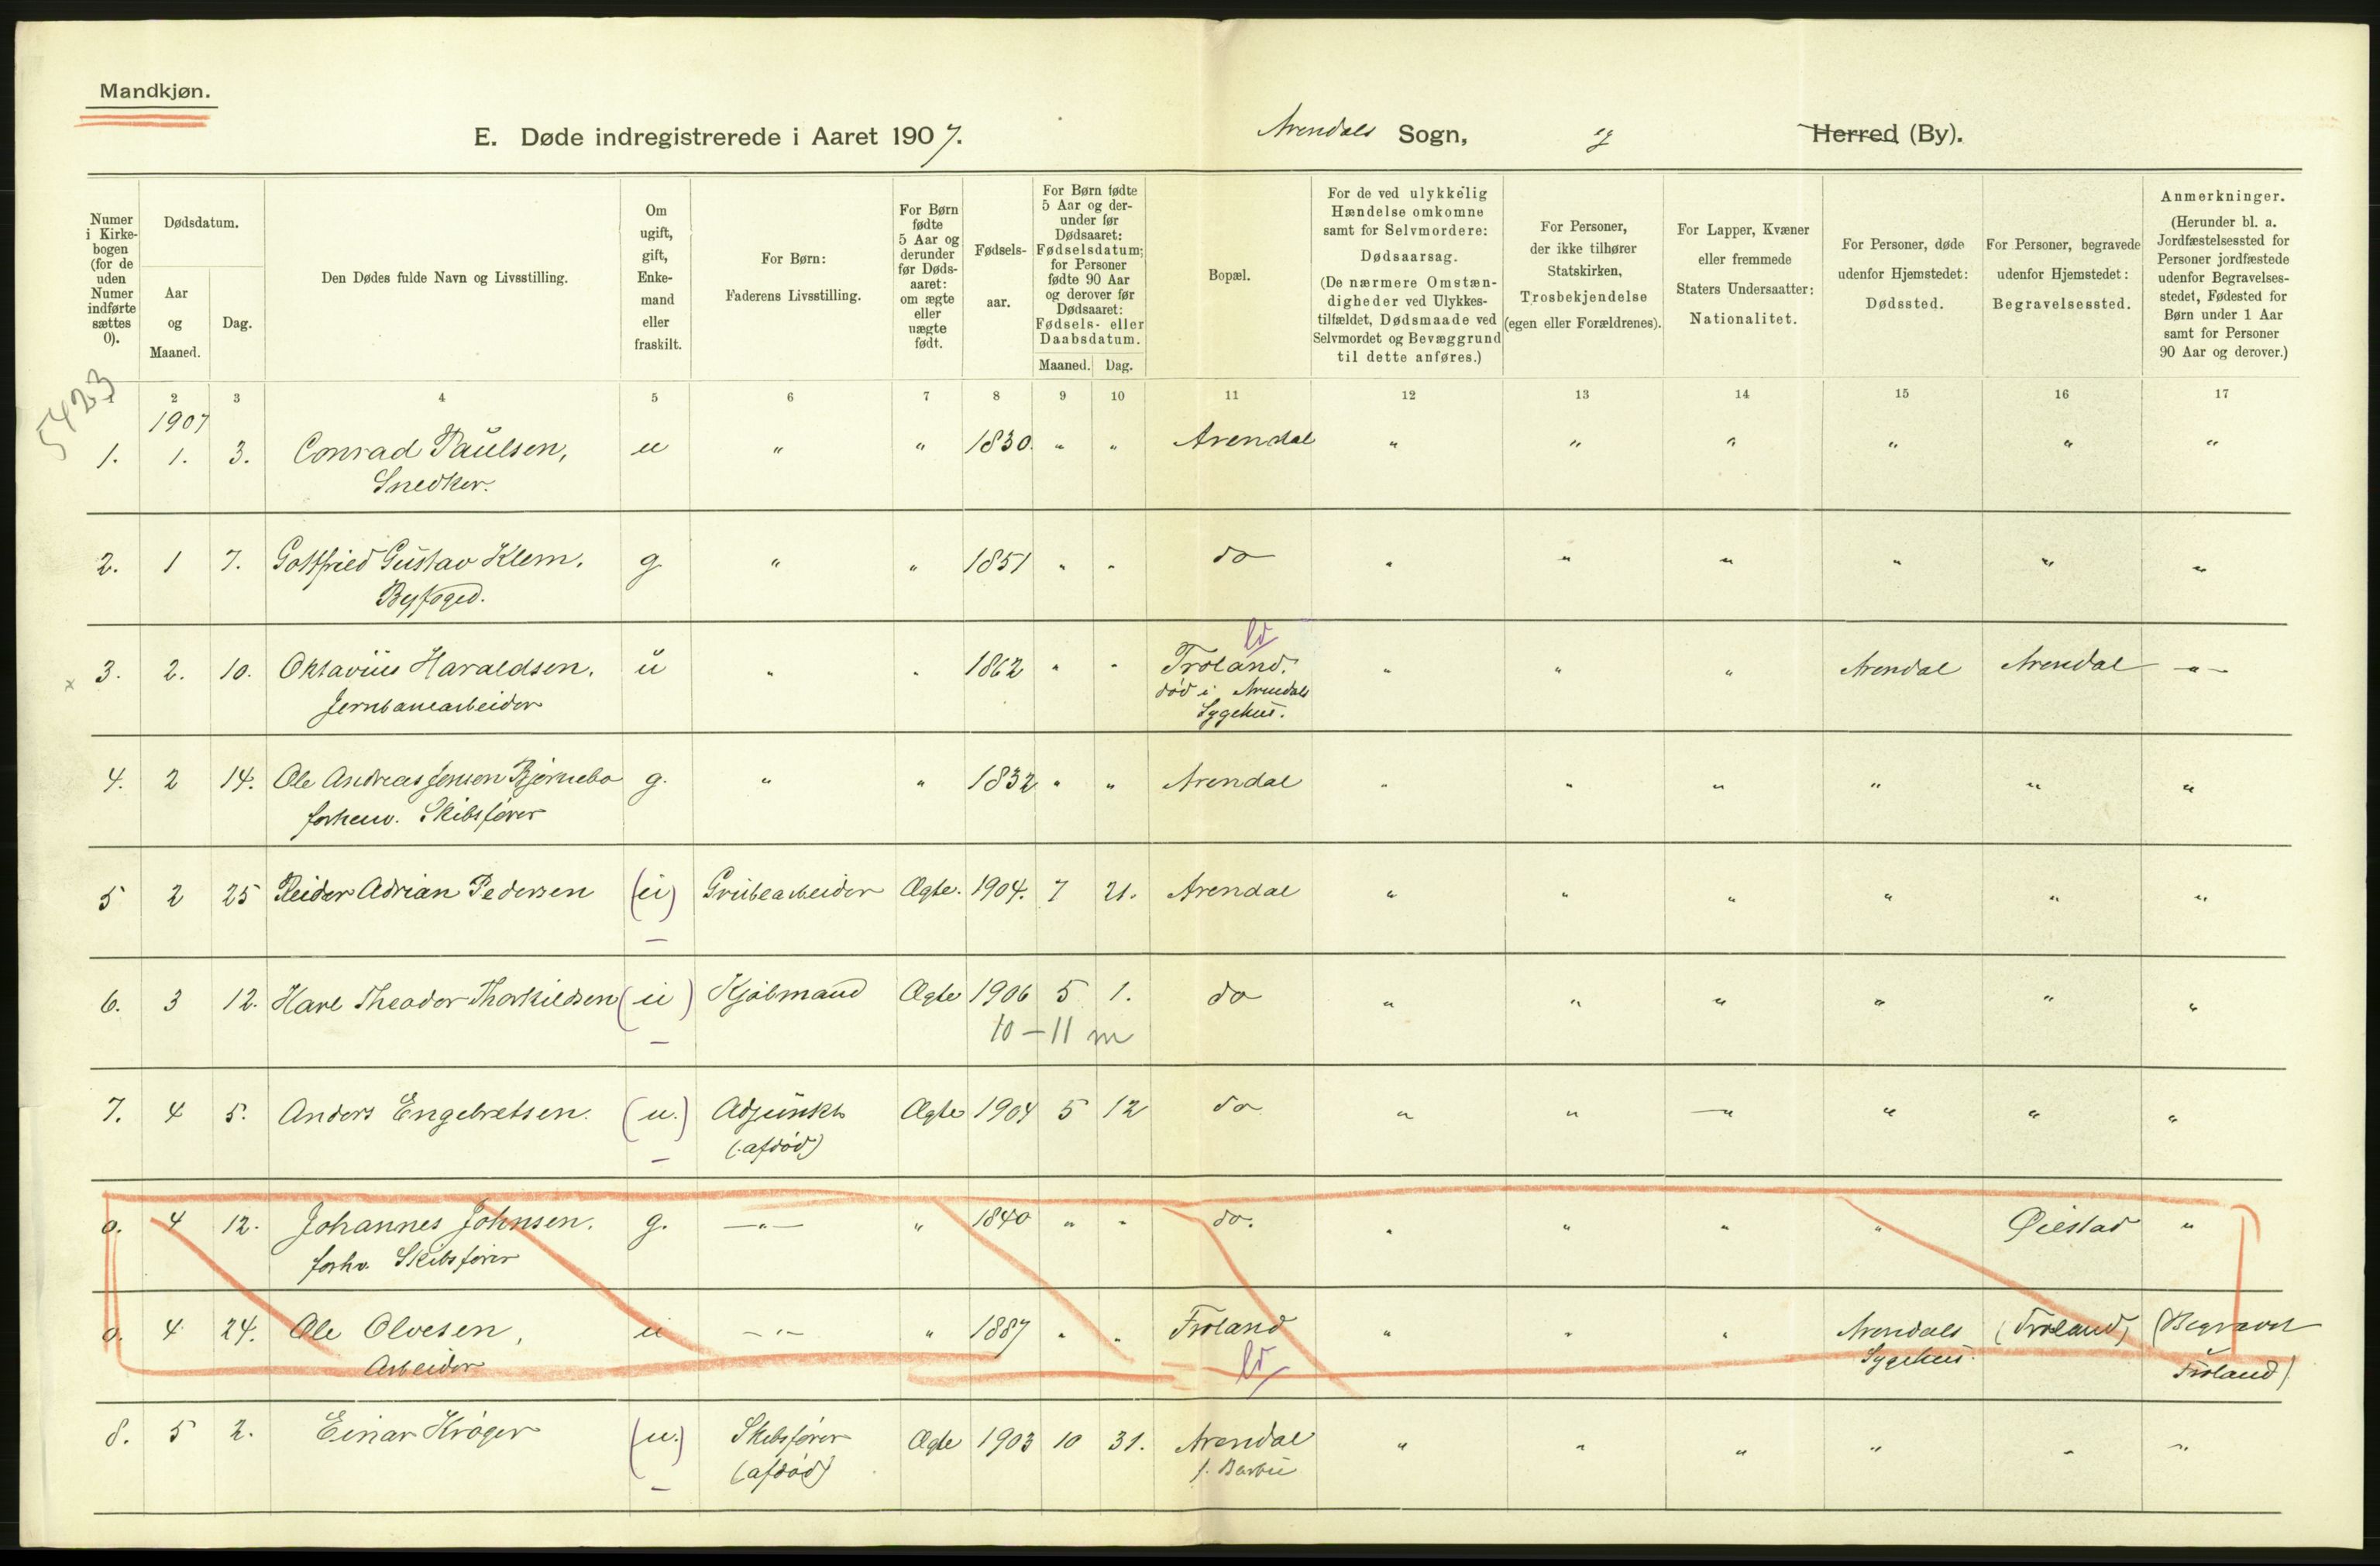 Mandkjøn.
E. Døde indregistrerede i Aaret 1907. Arendals Sogn, og Herred (By).
Numer i Kirkebogen (for de uden Numer indførte sættes 0).
Dødsdatum.
Aar og Maaned.
Dag.
Den Dødes fulde Navn og Livsstilling.
Om ugift, gift, Enkemand eller fraskilt.
For Børn: Faderens Livsstilling.
For Børn fødte 5 Aar og derunder før Dødsaaret: om ægte eller uægte født.
Fødselsaar.
For Børn fødte 5 Aar og derunder før Dødsaaret: Fødselsdatum; for Personer fødte 90 Aar og derover før Dødsaaret: Fødsels- eller Daabsdatum.
Maaned. Dag.
Bopæl.
For de ved ulykkelig Hændelse omkomne samt for Selvmordere: Dødsaarsag. (De nærmere Omstændigheder ved Ulykkestilfældet, Dødsmaade ved Selvmordet og Bevæggrund til dette anføres.)
For Personer, der ikke tilhører Statskirken, Trosbekjendelse (egen eller Forældrenes).
For Lapper, Kvæner eller fremmede Staters Undersaatter: Nationalitet.
For Personer, døde udenfor Hjemstedet: Dødssted.
For Personer, begravede udenfor Hjemstedet: Begravelsessted.
Anmerkninger. (Herunder bl. a. Jordfæstelsessted for Personer jordfæstede udenfor Begravelsesstedet, Fødested for Børn under 1 Aar samt for Personer 90 Aar og derover.)
5423
2 3 4 5 6 7 8 9 10 11 12 13 14 15 16 17
1907
1. 1. 3. Conrad Paulsen, u " " 1830. " " Arendal " " " " " "
Snedker.
2. 1 7. Gottfried Gustav Klem. g " " 1851 " " do " " " " " "
Byfoged.
3. 2. 10. Oktavius Haraldsen. u " " 1862 " " Froland. " " " Arendal Arendal —"—
Jernbanearbeider død i Arendals
Sygehus.
4. 2 14. Ole Andreas Jensen Bjørnebo g. " " 1832 " " Arendal " " " " " "
forhenv. Skibsfører
5 2 25 Reidar Adrian Pedersen (u) Grubearbeider Ægte. 1904. 7 21. Arendal " " " " " "
6. 3 12. Harl Theodor Thorkildsen (u) Kjøbmand Ægte 1906 5 1. do " " " " " "
10 – 11 m
7. 4 5. Anders Engebretsen. (u.) Adjunkt Ægte 1904 5 12 do " " —" " " "
(afdød)
0. 4 12. Johannes Johnsen. g. —"— " 1840 " " do. " " " " Øiestad "
forhv. Skibsfører
0. 4 24. Ole Olvesen, u —"— " 1887 " " Froland " " " Arendals (Froland) (Begravet
Arbeider Sygehus. Froland)
8. 5 2. Einar Krøger (u.) Skibsfører Ægte 1903 10 31. Arendal " " " " " "
(afdød) f. Barbu